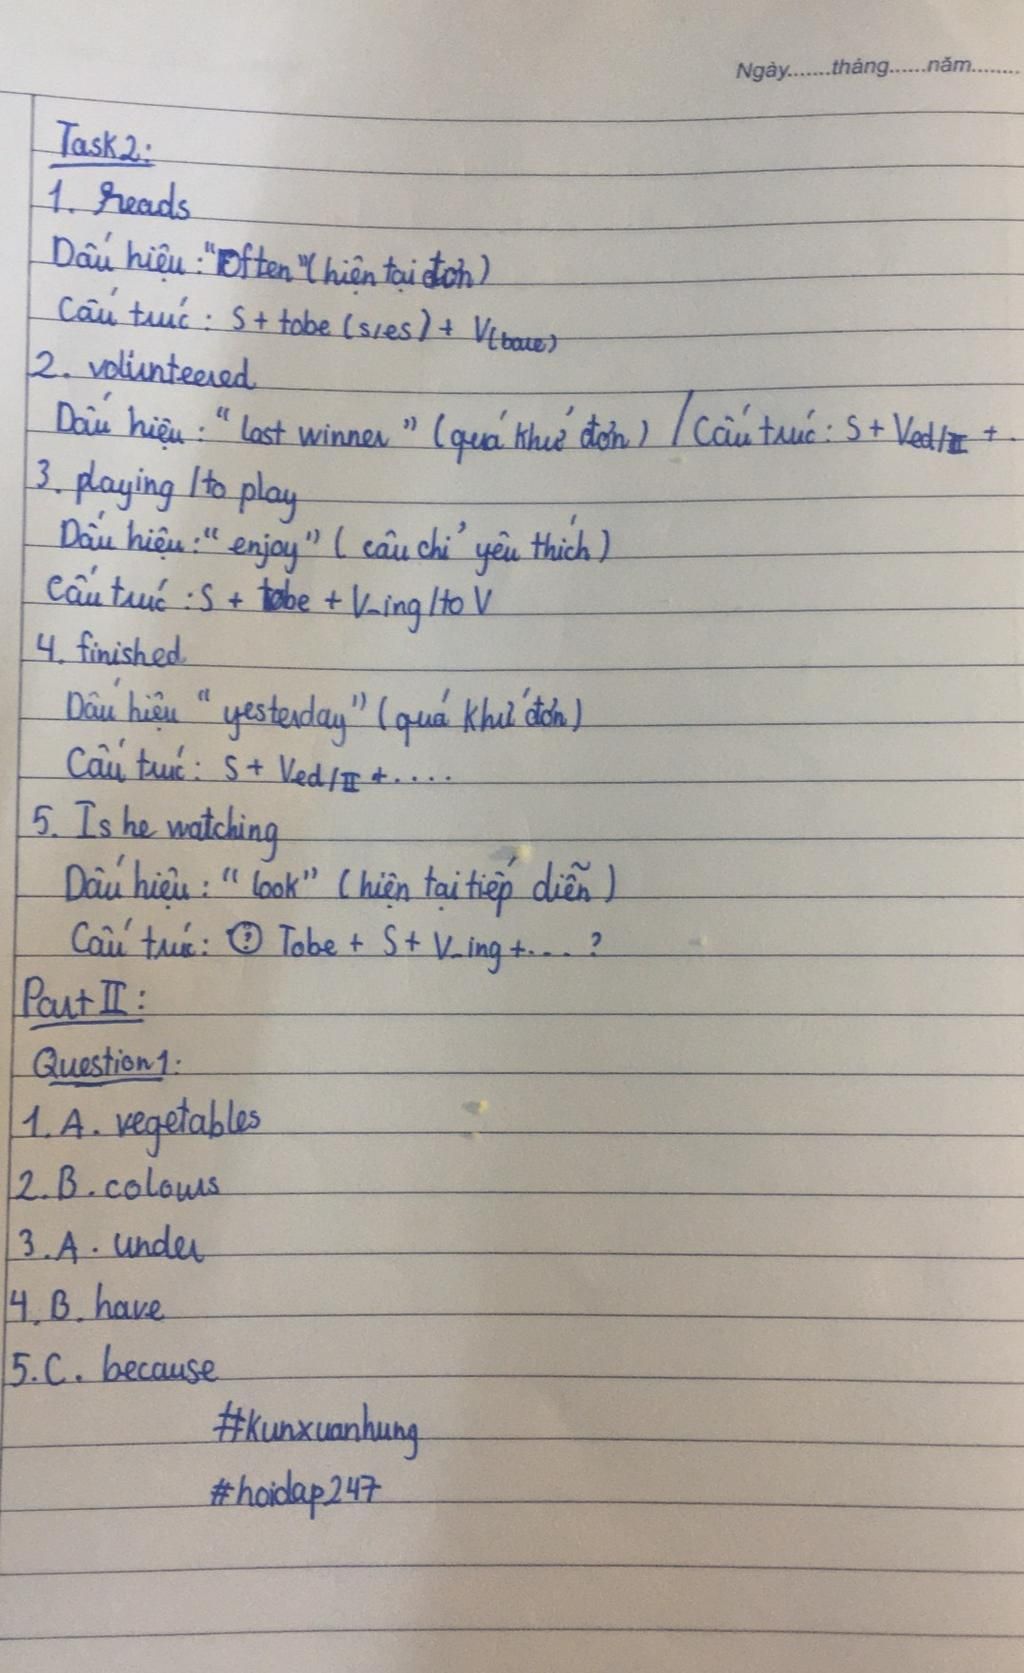 Ngày.......tháng......năm........
Task 2:
1. reads
Dấu hiệu: "Often" (hiện tại đơn)
Cấu trúc: S + tobe (s/es) + V(bare)
2. volunteered
Dấu hiệu: "last winner" (quá khứ đơn) / Cấu trúc: S + Ved/II + .
3. playing / to play
Dấu hiệu: "enjoy" (câu chỉ yêu thích)
Cấu trúc: S + tobe + V_ing / to V
4. finished
Dấu hiệu "yesterday" (quá khứ đơn)
Cấu trúc: S + Ved/II + ....
5. Is he watching
Dấu hiệu: "look" (hiện tại tiếp diễn)
Cấu trúc: (?) Tobe + S + V_ing + .... ?
Part II:
Question 1:
1. A. vegetables
2. B. colours
3. A. under
4. B. have
5. C. because
#Kunxuanhung
#hoidap247